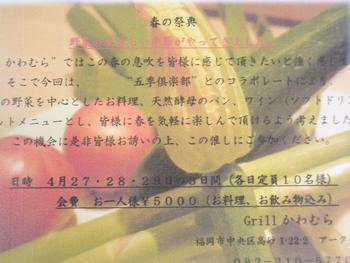 春の祭典
野菜の美味しい季節がやってきました。
かわむら”ではこの春の息吹を皆様に感じて頂きたいと強く感じま
そこで今回は、 “五季倶楽部”とのコラボレートにより、
の野菜を中心としたお料理、天然酵母のパン、ワイン（ソフトドリン
ットメニューとし、皆様に春を気軽に楽しんで頂けるよう考えました
この機会に是非皆様お誘いの上、この催しにご参加ください。
日時 4月27・28・29日の3日間（各日定員10名様）
会費 お一人様￥5000（お料理、お飲み物込み）
Grill かわむら
福岡市中央区高砂1-22-2 アーク
092-210-5770